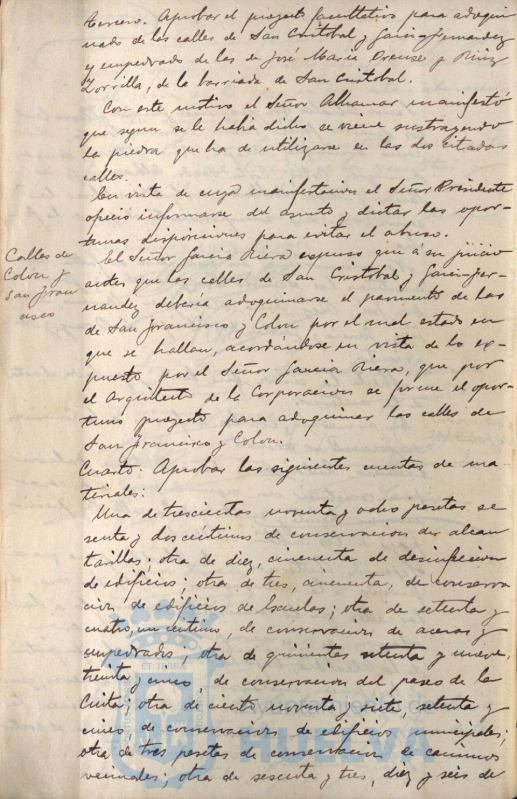 tercero. Aprobar el proyecto facultativo para adoqui
nado de las calles de San Cristobal y Garcia Fernandez
y empedrado de las de José Maria Orense y Ruiz
Zorrilla, de la barriada de San Cristobal.
Con este motivo el Señor Alhamar manifestó
que segun se le habia dicho se viene sustrayendo
la piedra que ha de utilizarse en las dos citadas
calles.
En vista de cuya manifestacion el Señor Presidente
ofreció informarse del asunto y dictar las opor-
tunas disposiciones para evitar el abuso.
Calles de
Colon y
San Fran
cisco
El Señor Garcia Riera expuso que á su juicio
antes que las calles de San Cristobal y Garcia Fer-
nandez deberia adoquinarse el pavimento de las
de San Francisco y Colon por el mal estado en
que se hallan, acordándose en vista de lo ex-
puesto por el Señor Garcia Riera, que por
el Arquitecto de la Corporacion se forme el opor-
tuno proyecto para adoquinar las calles de
San Francisco y Colon.
Cuarto. Aprobar las siguientes cuentas de ma-
teriales:
Una de trescientas noventa y ocho pesetas se
senta y dos céntimos de conservacion de alcan
tarillas; otra de diez, cincuenta de desinfeccion
de edificios; otra de tres, cincuenta, de conserva
cion de edificios de Escuelas; otra de setenta y
cuatro, un céntimo, de conservacion de aceras y
empedrados, otra de quinientas setenta y nueve,
treinta y cinco, de conservacion del paseo de la
Cinta; otra de ciento noventa y siete, setenta y
cinco de conservacion de edificios municipales;
otra de tres pesetas de conservacion de caminos
vecinales; otra de sesenta y tres, diez y seis de
ET TERRA
HUELVA